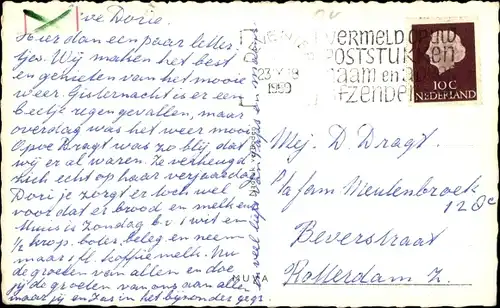 Lieve Dorie.
Hier dan een paar letter-
tjes. Wij maken het best
en genieten van het mooie
weer. Gisternacht is er een
beetje regen gevallen, maar
overdag was het weer mooi
Opoe Dragt was zo blij, dat
wij er al waren. Ze verheugd
zich echt op haar verjaardag.
Dorie je zorgt er toch wel
voor dat er brood en melk in
huis is Zondag b.v. 1 wit en
1/2 krop. boter, beleg en neem
maar 1 fl. koffiemelk. Nu
de groeten van allen en doe
jij de groeten van ons aan allen
maar jij en Jas in het bijzonder gegr.
VERMELD OP UW
POSTSTUKKEN
naam en
AFZENDER
23
1959
10 C
NEDERLAND
Mej. D. Dragt.
p/a fam Meulenbroek
Beverstraat 128c
Rotterdam Z.
MUVA